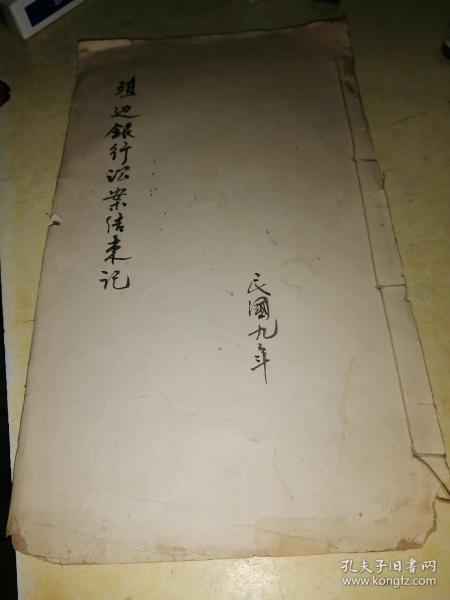 殖边銀行訟案结束记
民國九年
孔夫子旧书网
www.kongfz.com